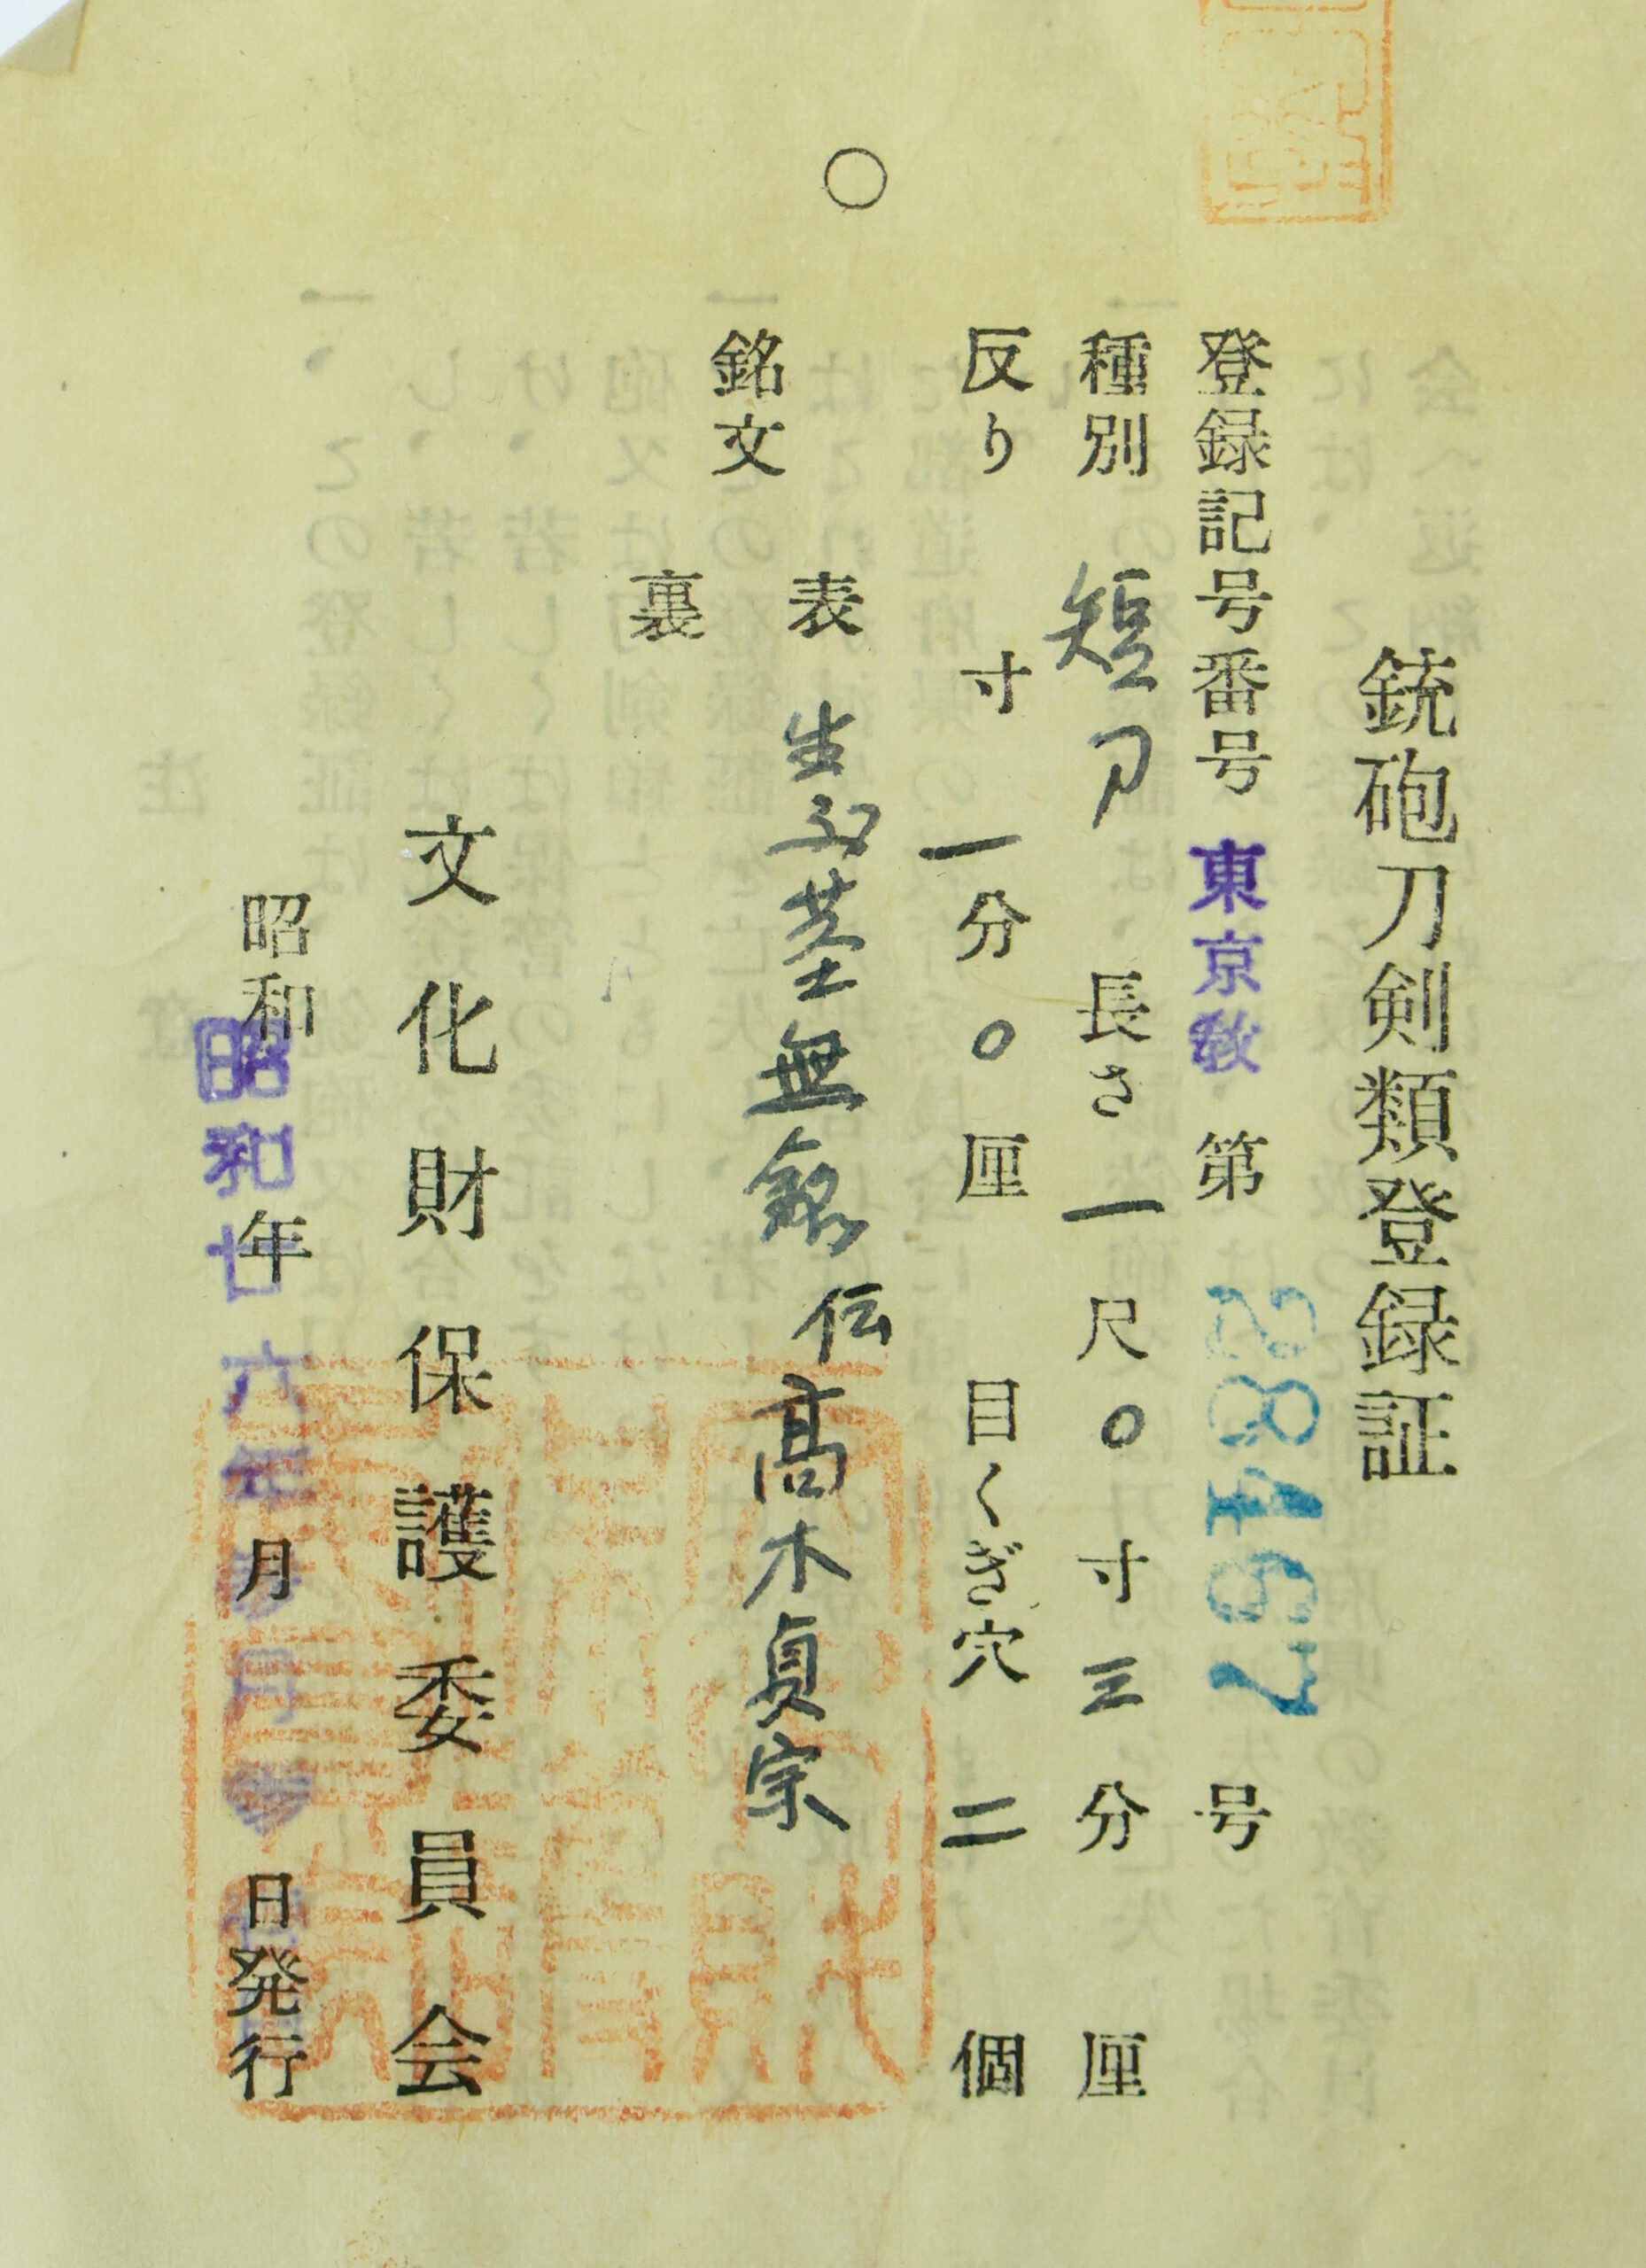 銃砲刀剣類登録証
登録記号番号 東京教 第 28167 号
種別 短刀 長さ 一尺〇寸三分 厘
反り 寸一分〇厘 目くぎ穴 二 個
銘文
表 生ぶ茎無銘 伝高木貞宗
裏
文化財保護委員会
昭和 年 月 日発行
昭和廿六年